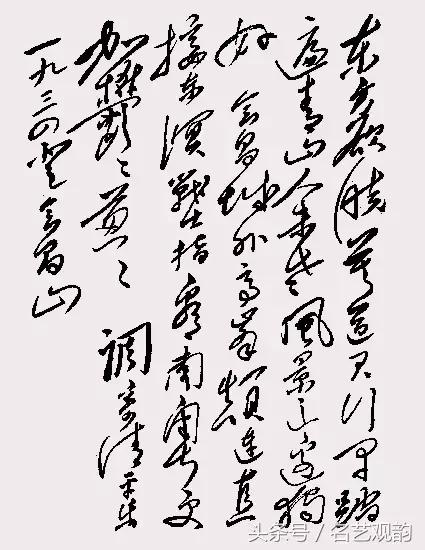 东方欲晓莫道君行早踏
遍青山人未老風景这邊獨
好 会昌城外高峯顛連直
接东溟戰士指看南粤更
加鬱〻葱〻 調寄清平乐
一九三四 登会昌山
头条号 / 名艺观韵